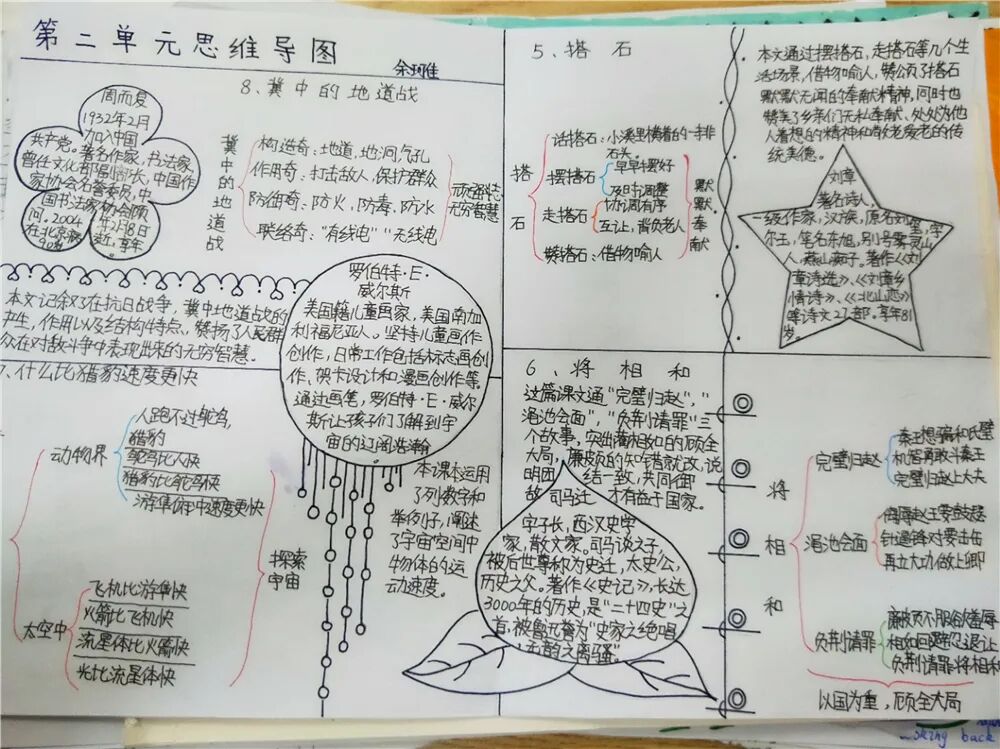 第二单元思维导图
余珂唯
8、冀中的地道战
周而复
1932年2月
加入中国
共产党。著名作家,书法家
曾任文化部副部长,中国作
家协会名誉委员,中
国书法家协会顾
问。2004
年2月8日
在北京逝
逝,享年
90岁
冀中的地道战
构造奇:地道,地洞,气孔
作用奇:打击敌人,保护群众
防御奇:防火,防毒,防水
联络奇:“有线电”“无线电
顽强斗志
无穷智慧
本文记叙了在抗日战争,冀中地道战的
产生,作用以及结构特点,赞扬了人民群
众在对敌斗争中表现出来的无穷智慧。
罗伯特·E·
威尔斯
美国籍儿童画家,美国南加
利福尼亚人。坚持儿童画作
创作,日常工作包括标志画创
作、贺卡设计和漫画创作等。
通过画笔,罗伯特·E·威尔
斯让孩子们了解到宇
宙的辽阔浩瀚
5、搭石
搭石
话搭石:小溪里横着的一排
石头。
摆搭石
早早摆好
及时调整
走搭石
协调有序
互让,背负老人
赞搭石:借物喻人
默默奉献
本文通过摆搭石,走搭石等几个生
活场景,借物喻人,赞颂了搭石
默默无闻的奉献精神,同时也
赞美了乡亲们无私奉献、处处为他
人着想的精神和敬老爱老的传
统美德。
刘章
著名诗人,
一级作家,汉族,原名刘玺,学
尔王,笔名东旭,别号雾灵山
人,燕山痴子。著作《刘
章诗选》、《刘章乡
情诗》、《北山恋》
等诗文27部。享年81
岁。
7、什么比猎豹速度更快
动物界
人跑不过鸵鸟,
猎豹
鸵鸟比人快
猎豹比鸵鸟快
游隼俯冲速度更快
太空中
飞机比游隼快
火箭比飞机快
流星体比火箭快
光比流星体快
探索
宇宙
本课本运用
了列数字和
举例子,阐述
了宇宙空间中
物体的运
动速度。
6、将相和
这篇课文通“完璧归赵”,“
渑池会面”,“负荆请罪”三
个故事,突出蔺相如的顾全
大局,廉颇的知错就改,说
明团结一致,共同御
敌才有益于国家。
司马迁
字子长,西汉史学
家,散文家。司马谈之子,
被后世尊称为史迁,太史公,
历史之父。著作《史记》,长达
3000年的历史,是“二十四史”之
首,被鲁迅誉为“史家之绝唱
,无韵之离骚”
将相和
完璧归赵
秦王想骗和氏璧
机智勇敢斗秦王
完璧归赵上大夫
渑池会面
侮辱赵王要鼓瑟
针锋相对要击缶
再立大功做上卿
负荆请罪
廉颇不服欲羞辱
相如回避忍退让
负荆请罪将相和
以国为重,顾全大局
sking back